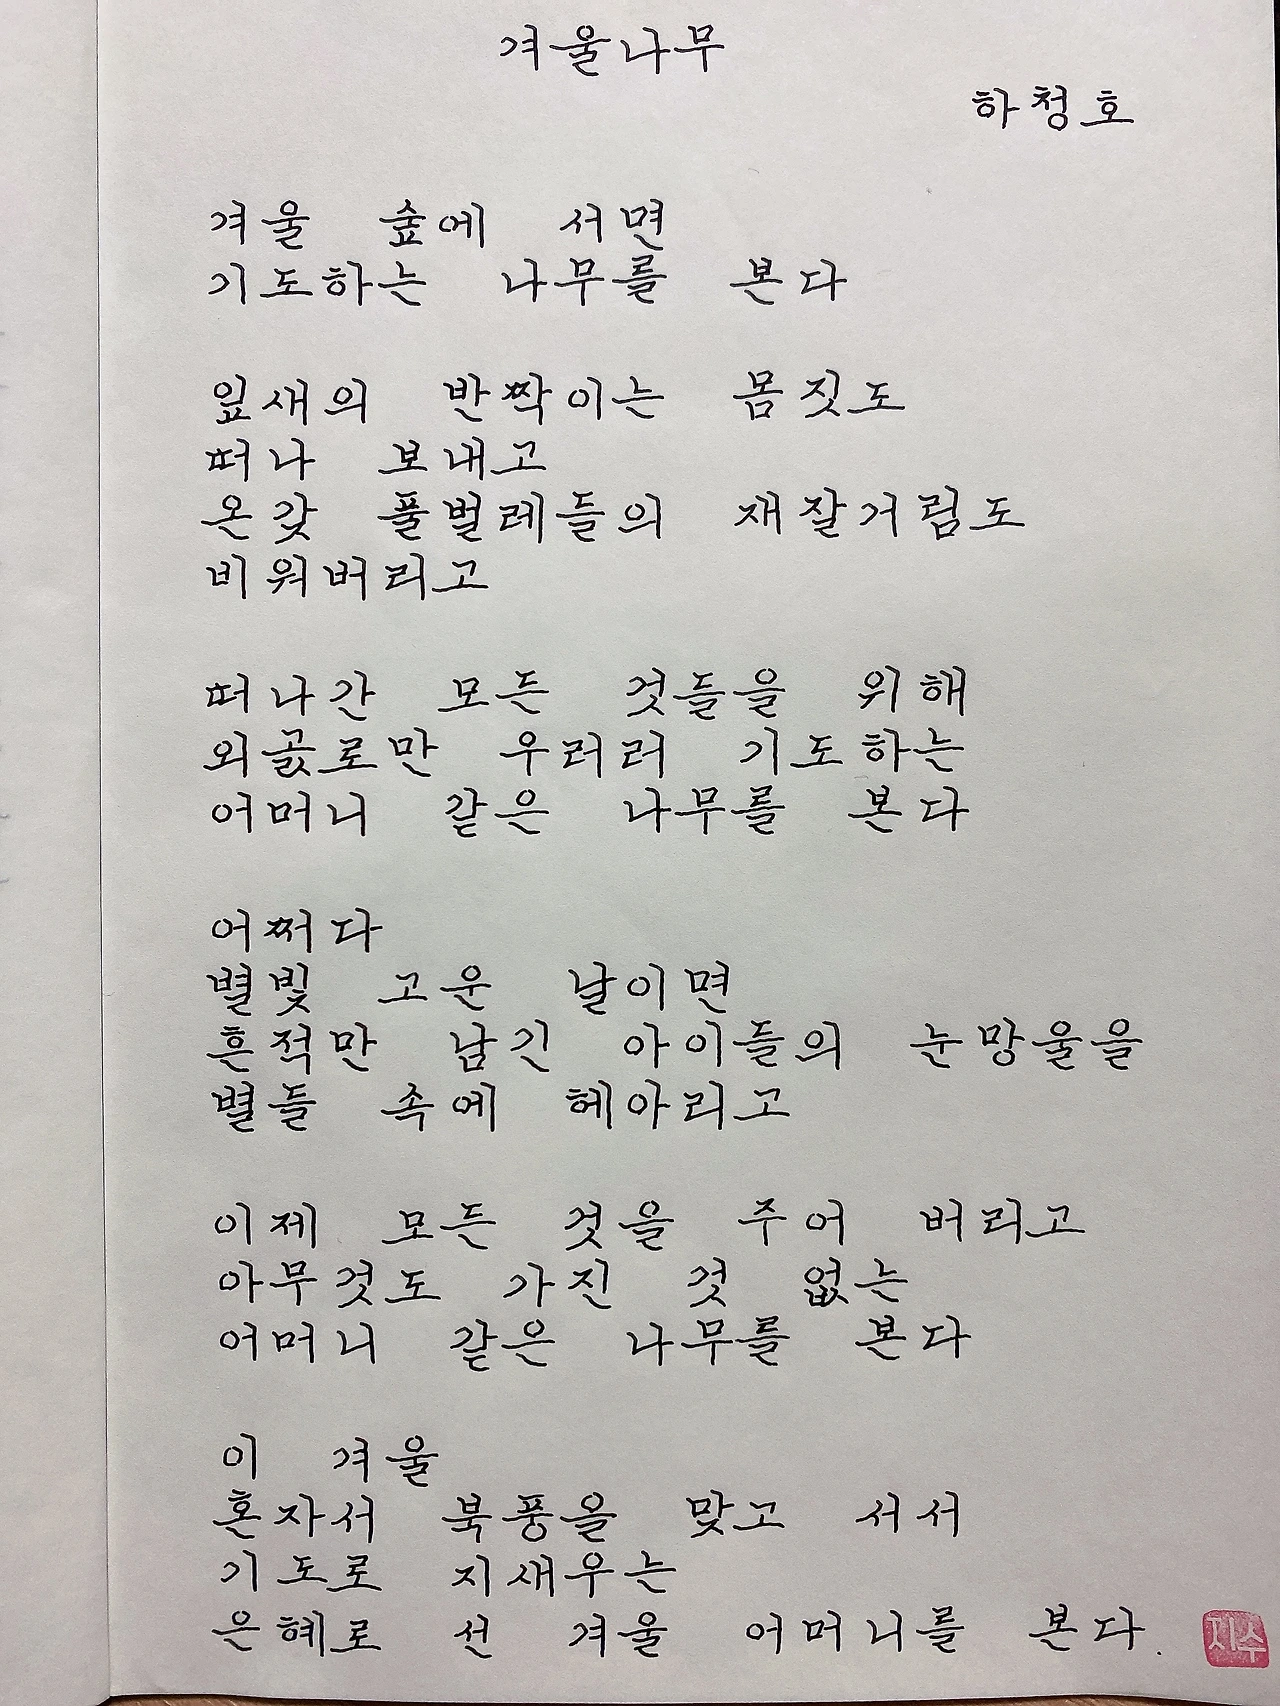 겨울나무
하청호
겨울 숲에 서면
기도하는 나무를 본다
잎새의 반짝이는 몸짓도
떠나 보내고
온갖 풀벌레들의 재잘거림도
비워버리고
떠나간 모든 것들을 위해
외곬로만 우러러 기도하는
어머니 같은 나무를 본다
어쩌다
별빛 고운 날이면
흔적만 남긴 아이들의 눈망울을
별들 속에 헤아리고
이제 모든 것을 주어 버리고
아무것도 가진 것 없는
어머니 같은 나무를 본다
이 겨울
혼자서 북풍을 맞고 서서
기도로 지새우는
은혜로 선 겨울 어머니를 본다.
지수